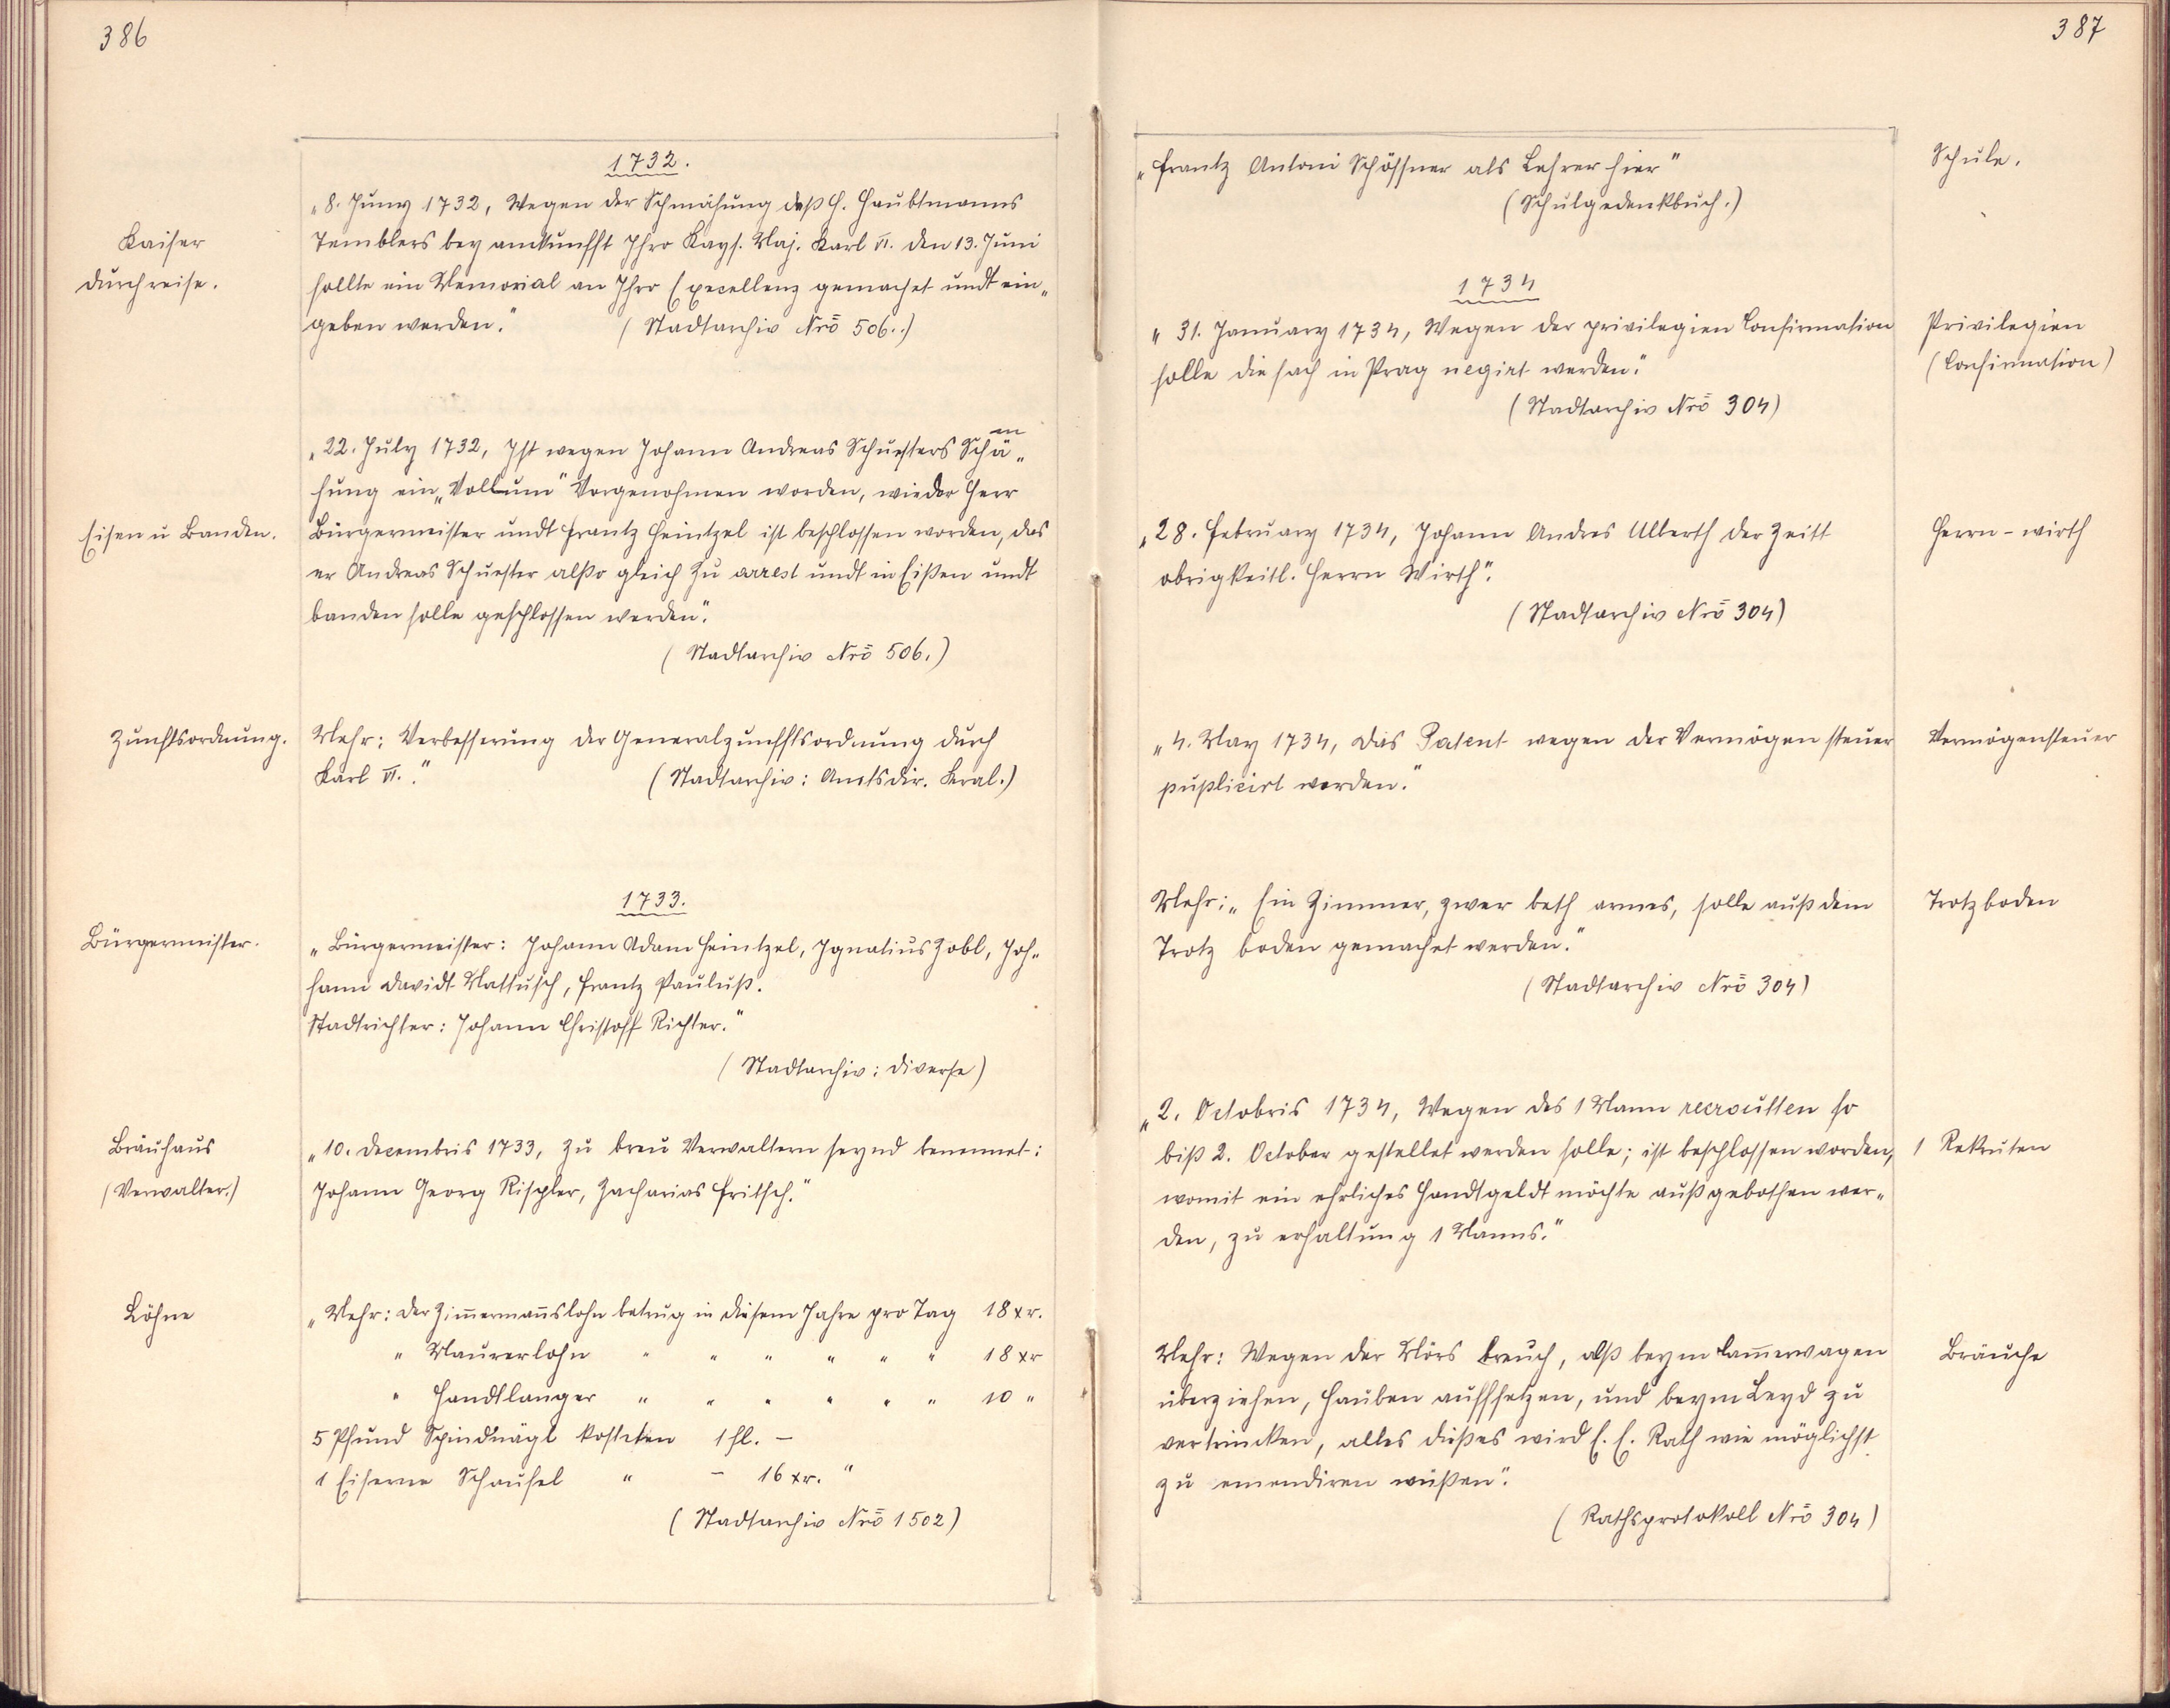 386
1732.
„8. Juny 1732, Wegen der Schmähung deß H. Haubtmanns
Kaiser
Temblers bey ankunfft Ihro Kays. Maj. Karl VI. den 13. Juni
durchreise.
sollte ein Memorial an Ihro Excellenz gemachet undt ein„
geben werden.“ (Stadtarchiv Nrō 506.)
„22. July 1732, Ist wegen Johann Andreas Schuesters Schmä„
hung ein „Vollum“ Vorgenohmen worden, wieder Herr
Eisen u Banden.
Bürgermeister undt Frantz Heintzel ist beschlossen worden, das
er Andreas Schuester alßo gleich zu arrest undt in Eißen undt
banden solle geschlossen werden“.
(Stadtarchiv Nrō 506.)
Zunftsordnung.
Mehr: Verbesserung der Generalzunfftsordnung durch
Karl VI.“ (Stadtarchiv: Amtsdir. Kral.)
1733.
Bürgermeister.
„Bürgermeister: Johann Adam Heintzel, Ignatius Zobl, Joh„
hann Davidt Mattusch, Frantz Pauluß.
Stadtrichter: Johann Christoff Richter.“
(Stadtarchiv: Diverse)
Bräuhaus
(Verwalter.)
„10. Decembris 1733, zu breu Verwaltern seynd benennet:
Johann Georg Rischler, Zacharias Fritsch.“
Löhne
„Mehr: Der Zim̄erman̄slohn betrug in diesem Jahre pro Tag 18 xr.
" Maurerlohn " " " " " " 18 xr
" Handlanger " " " " " " 10 "
5 Pfund Spindnägl kosteten 1 fl. –
1 Eiserne Schaufel " – 16 xr. “
(Stadtarchiv Nrō 1502)
387
„Frantz Antoni Schössner als Lehrer hier“
Schule.
(Schulgedenkbuch.)
1734
„31. January 1734, Wegen der privilegien Confirmation
Privilegien
solle die sach in Prag negirt werden“.
(Confirmation)
(Stadtarchiv Nrō 304)
„28. February 1734, Johann Andres Ulberth der Zeitt
Herrn-wirth
obrigkeitl. Herrn Wirth“.
(Stadtarchiv Nrō 304)
„4. May 1734, das Patent wegen der Vermögen steuer
Vermögensteuer
puplicirt worden.“
Mehr: „Ein Zimmer, zwer beth armes, solle auß dem
Trotzboden
Trotz boden gemachet werden.“
(Stadtarchiv Nrō 304)
„2. Octobris 1734, Wegen des 1 Mann recroutten so
biß 2. October gestellet werden solle; ist beschlossen worden,
1 Rekruten
womit ein ehrliches Handtgeldt möchte außgebothen wer„
den, zu erhaltung 1 Manns.“
Mehr: Wegen der Mörs breuch, alß beym Kam̄erwagen
Bräuche
überziehen, Hauben aufffsetzen, und beym Leyd zu
vertrincken, alles dießes wird E. E. Rath wie möglichst
zu emendiren wüßen“.
(Rathsprotokoll Nrō 304)